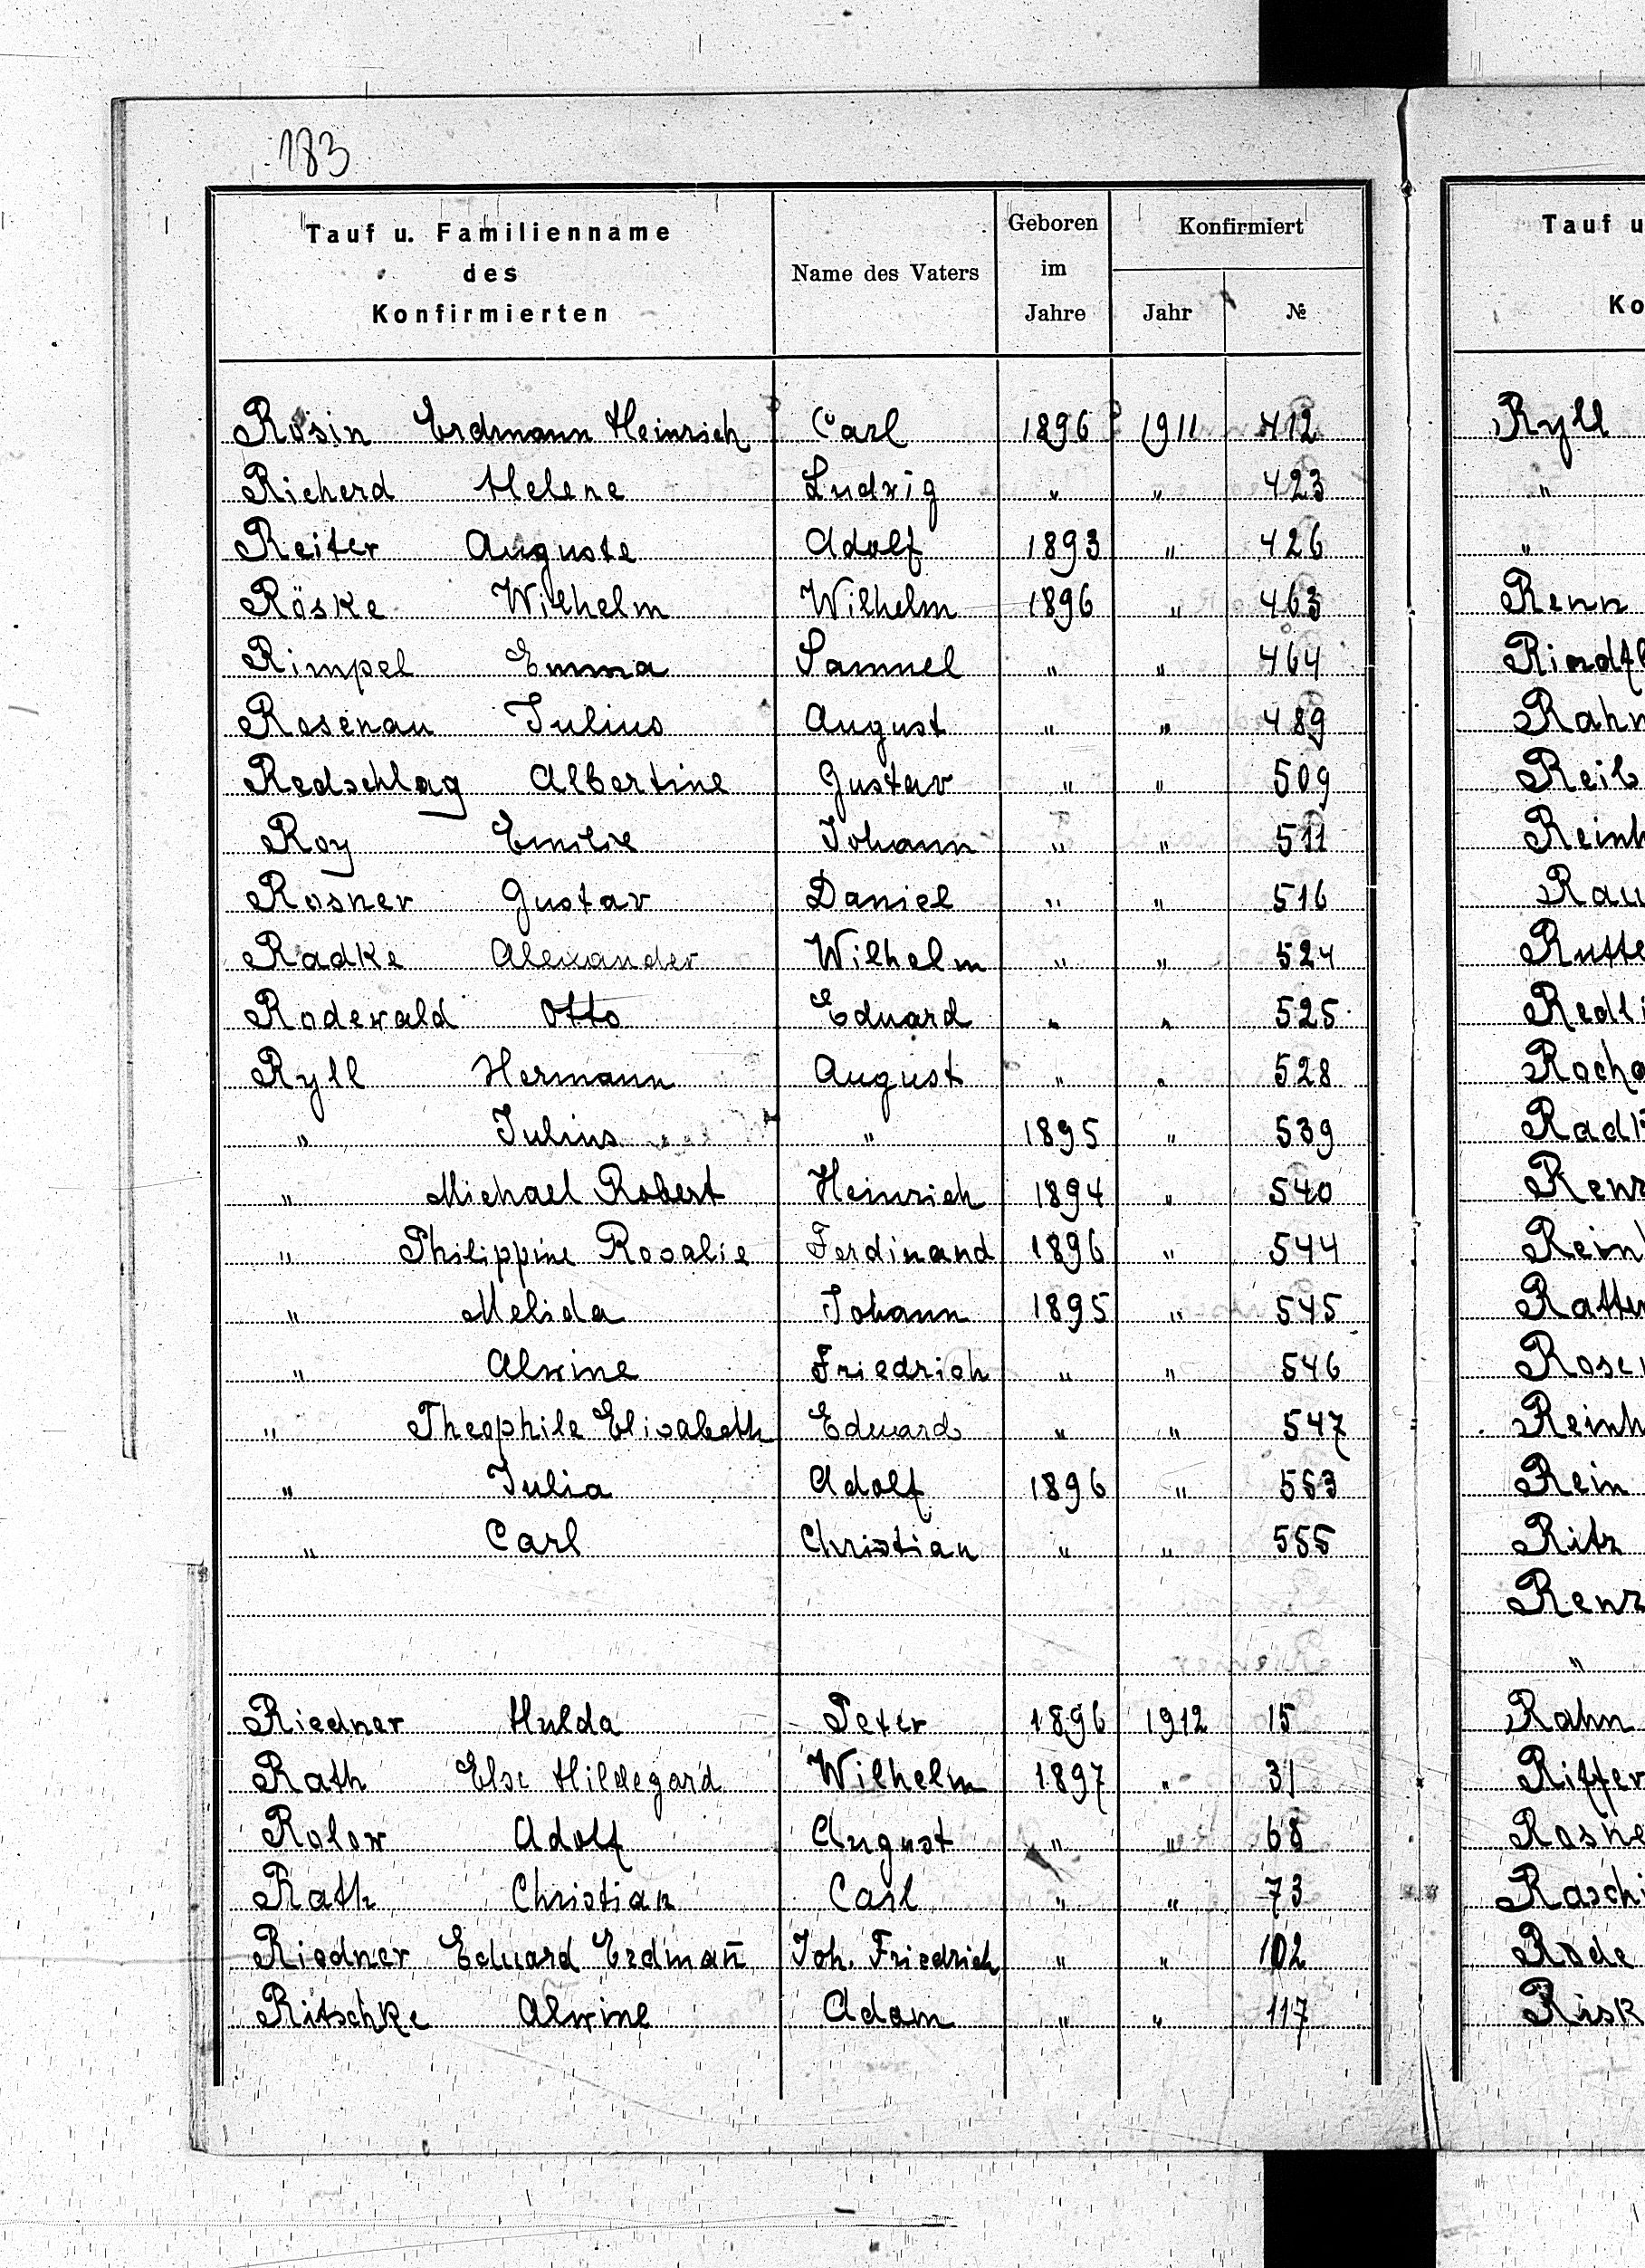 183
Tauf u. Familienname des Konfirmierten | Name des Vaters | Geboren im Jahre | Konfirmiert Jahr | №
Rosin Erdmann Heinrich | Carl | 1896 | 1911 | 412
Richerd Helene | Ludwig | " | " | 423
Reiter Auguste | Adolf | 1893 | " | 426
Röske Wilhelm | Wilhelm | 1896 | " | 463
Rimpel Emma | Samuel | " | " | 464
Rosenau Julius | August | " | " | 489
Redschlag Albertine | Gustav | " | " | 509
Roy Emilie | Johann | " | " | 511
Rosner Gustav | Daniel | " | " | 516
Radke Alexander | Wilhelm | " | " | 524
Rodewald Otto | Eduard | " | " | 525
Ryll Hermann | August | " | " | 528
" Julius | " | 1895 | " | 539
" Michael Robert | Heinrich | 1894 | " | 540
" Philippine Rosalie | Ferdinand | 1896 | " | 544
" Melida | Johann | 1895 | " | 545
" Alwine | Friedrich | " | " | 546
" Theophile Elisabeth | Eduard | " | " | 547
" Julia | Adolf | 1896 | " | 553
" Carl | Christian | " | " | 555
Riedner Hulda | Peter | 1896 | 1912 | 15
Rath Else Hildegard | Wilhelm | 1897 | " | 31
Rolow Adolf | August | " | " | 68
Rath Christian | Carl | " | " | 73
Riedner Eduard Erdman̅ | Joh. Friedrich | " | " | 102
Ritschke Alwine | Adam | " | " | 117
Tauf u
Ko
Ryll
"
"
Renn
Rahn
Reib
Reinh
Rau
Rutte
Redli
Rocho
Radk
Renz
Reinh
Rosen
Reinh
Rein
Ritz
Renz
"
Rahn
Rosne
Raschi
Rode